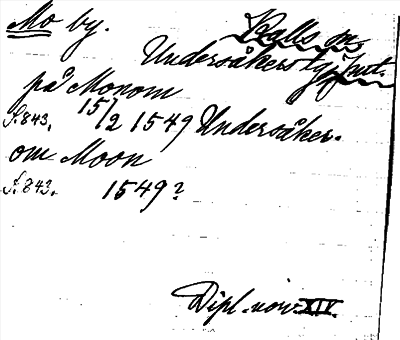 Mo by. Kalls m.
Undersåkers tgs.prt.
på Monom
S. 843. 15/2 1549 Undersåker.
om Moon
S. 843. 1549?
Dipl. norv. XIV.